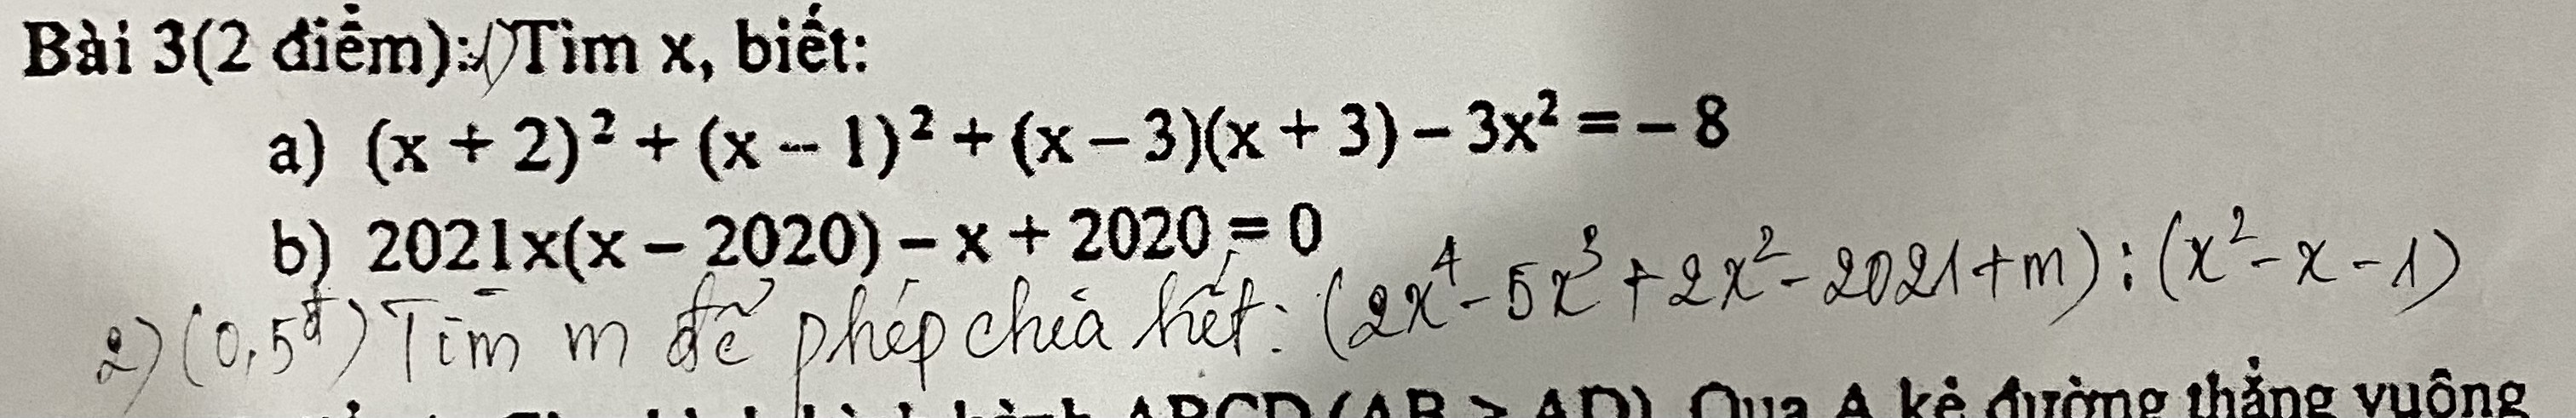 Bài 3(2 điểm): 1) Tìm x, biết:
a) (x + 2)² + (x – 1)² + (x – 3)(x + 3) – 3x² = – 8
b) 2021x(x – 2020) – x + 2020 = 0
2) (0,5đ) Tìm m để phép chia hết: (2x⁴ - 5x³ + 2x² - 2021 + m) : (x² - x - 1)
ABCD (AB > AD). Qua A kẻ đường thẳng vuông